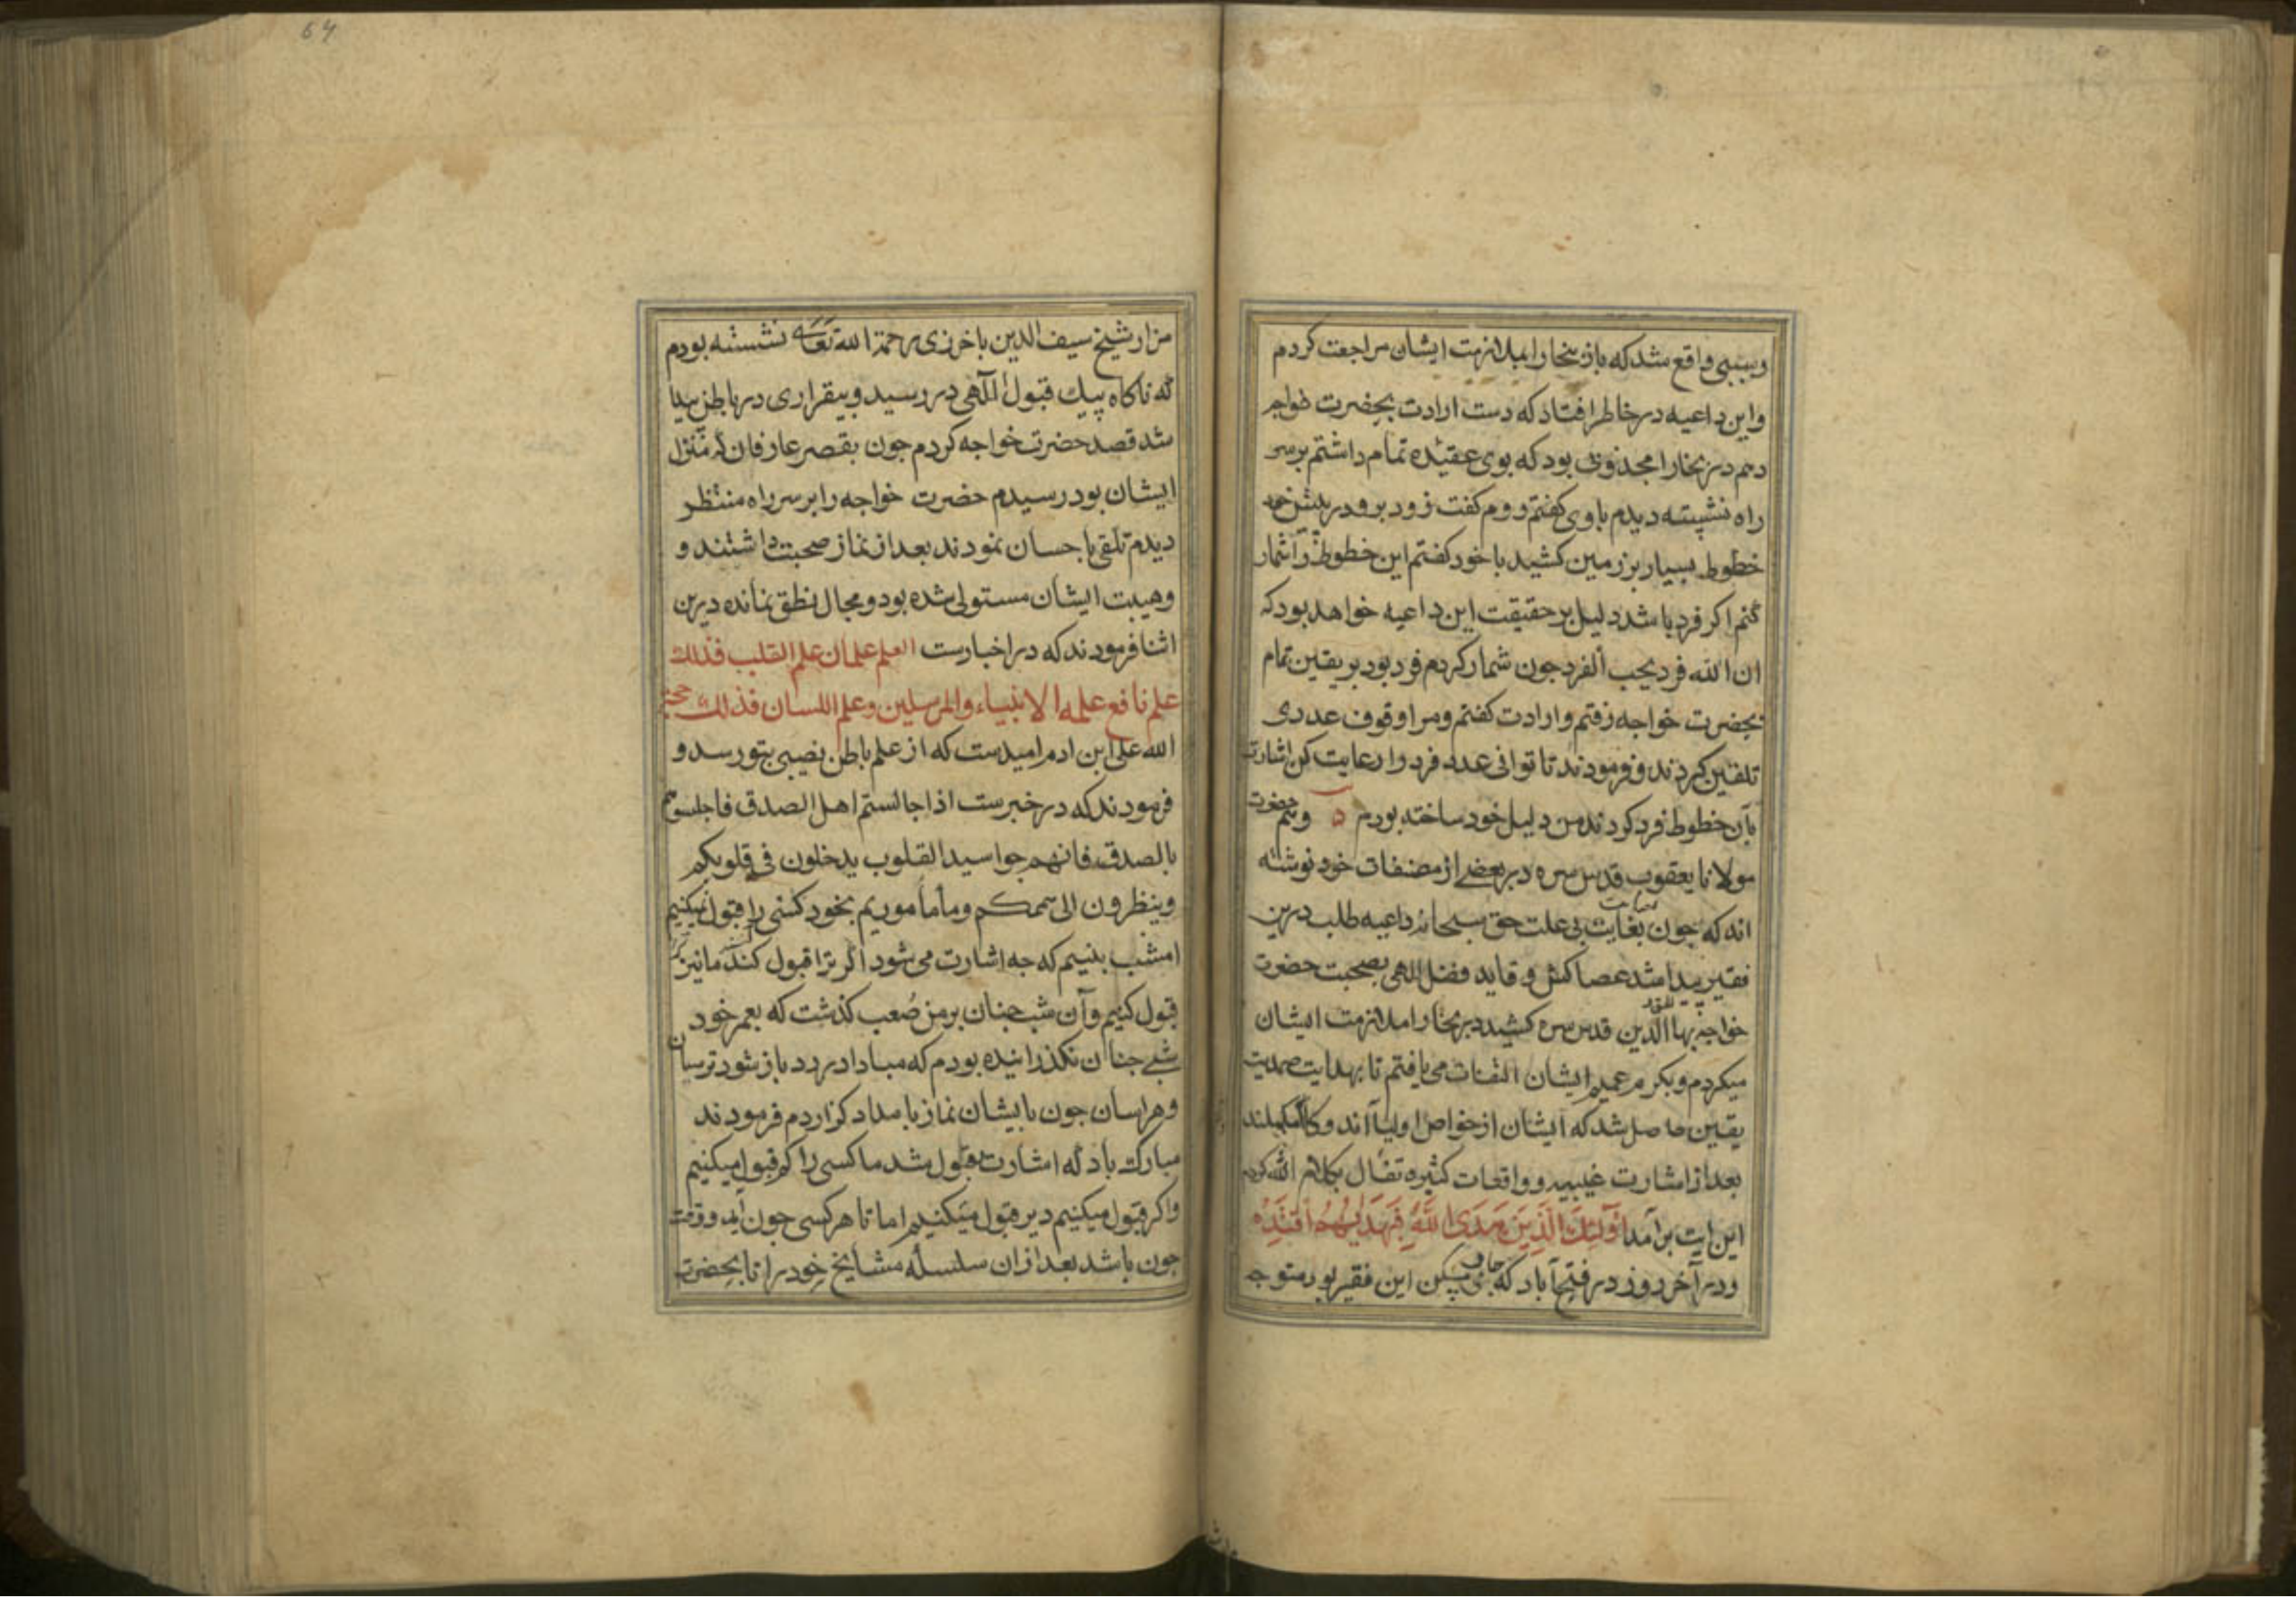 وبسببی واقع شد که باز ببخارا بملازمت ایشان مراجعت کردم
واین داعیه در خاطر افتاد که دست ارادت بحضرت خواجه
دهم در بخارا مجذوبی بود که بوی عقیده تمام داشتم بر سر
راه نشسته دیدم با وی کفتم روم کفت زود برو در پیش خود
خطوط بسیار بر زمین کشید با خود کفتم این خطوط را شمار
کنم اکر فرد باشد دلیل بر حقیقت این داعیه خواهد بود که
ان الله فرد یحب الفرد جون شمار کردم فرد بود بر یقین تمام
بحضرت خواجه رفتم و ارادت کفتم ومرا وقوف عددی
تلقین کردند و فرمودند تا توانی عدد فرد را رعایت کن اشارت
بآن خطوط فرد کردند من دلیل خود ساخته بودم ه وهم حضرت
مولانا یعقوب قدس سره در بعضی از مصنفات خود نوشته
اند که جون بعنایت بی علت حق سبحانه داعیه طلب درین
فقیر پیدا شد عصاکش و قاید فضل الهی بصحبت حضرت
خواجه بهاالدین قدس سره کشید در بخارا ملازمت ایشان
میکردم و بکرم عمیم ایشان التفات می یافتم تا بهدایت صمدیت
یقین حاصل شد که ایشان از خواص اولیاآند و کامل مکملند
بعد از اشارت غیبیه وواقعات کثیره تفأل بکلام الله کردم
این ایت بر آمد اُولٰئِكَ الَّذِينَ هَدَى اللَّهُ فَبِهُدٰيهُمُ اقْتَدِهْ
ودر آخر روز در فتح آباد که جای مسکن این فقیر بود متوجه
64
مزار شیخ سیف الدین باخرزی رحمة الله تعالی نشسته بودم
که ناکاه پیك قبول الٓهی در رسید و بیقراری در باطن پیدا
شد قصد حضرت خواجه کردم جون بقصر عارفان که منزل
ایشان بود رسیدم حضرت خواجه را بر سر راه منتظر
دیدم تلقی باحسان نمودند بعد از نماز صحبت داشتند و
وهیبت ایشان مستولی شده بود و مجال نطق نمانده درین
اثنا فرمودند که در اخبارست العلم علمان علم القلب فذلك
علم نافع علمه الانبیاء والمرسلین وعلم اللسان فذالك حجة
الله علی ابن ادم امیدست که از علم باطن نصیبی بتو رسد و
فرمودند که در خبرست اذا جالستم اهل الصدق فاجلسوهم
بالصدق فانهم جواسید القلوب یدخلون فی قلوبکم
وینظرون الی هممکم وما مأموریم بخود کسی را قبول نمیکنیم
امشب ببینیم که جه اشارت می شود اکر ترا قبول کند ما نیز
قبول کنیم وآن شب جنان بر من صعب کذشت که بعمر خود
شبی جنان نکذرانیده بودم که مبادا در رد باز شود ترسان
وهراسان جون با یشان نماز بامداد کزاردم فرمودند
مبارک باد که اشارت قبول شد ما کسی را کم قبول میکنیم
واکر قبول میکنیم دیر قبول میکنیم اما تا هر کسی جون آید و وقت
جون باشد بعد از ان سلسله مشایخ خود را تا بحضرت